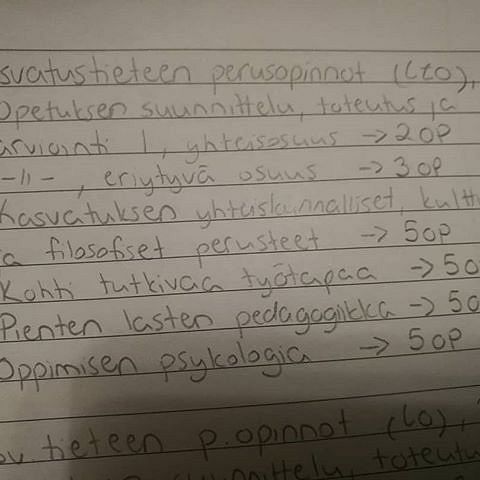 svatustieteen perusopinnot (Lto),
Opetuksen suunnittelu, toteutus ja
arviointi 1, yhteisosuus → 2 op
-||- , eriytyvä osuus → 3 op
Kasvatuksen yhteiskunnalliset, kultt
ja filosofiset perusteet → 5 op
Kohti tutkivaa työtapaa → 5 o
Pienten lasten pedagogiikka → 5 o
Oppimisen psykologia → 5 op
tieteen p.opinnot (LO),
toteutu